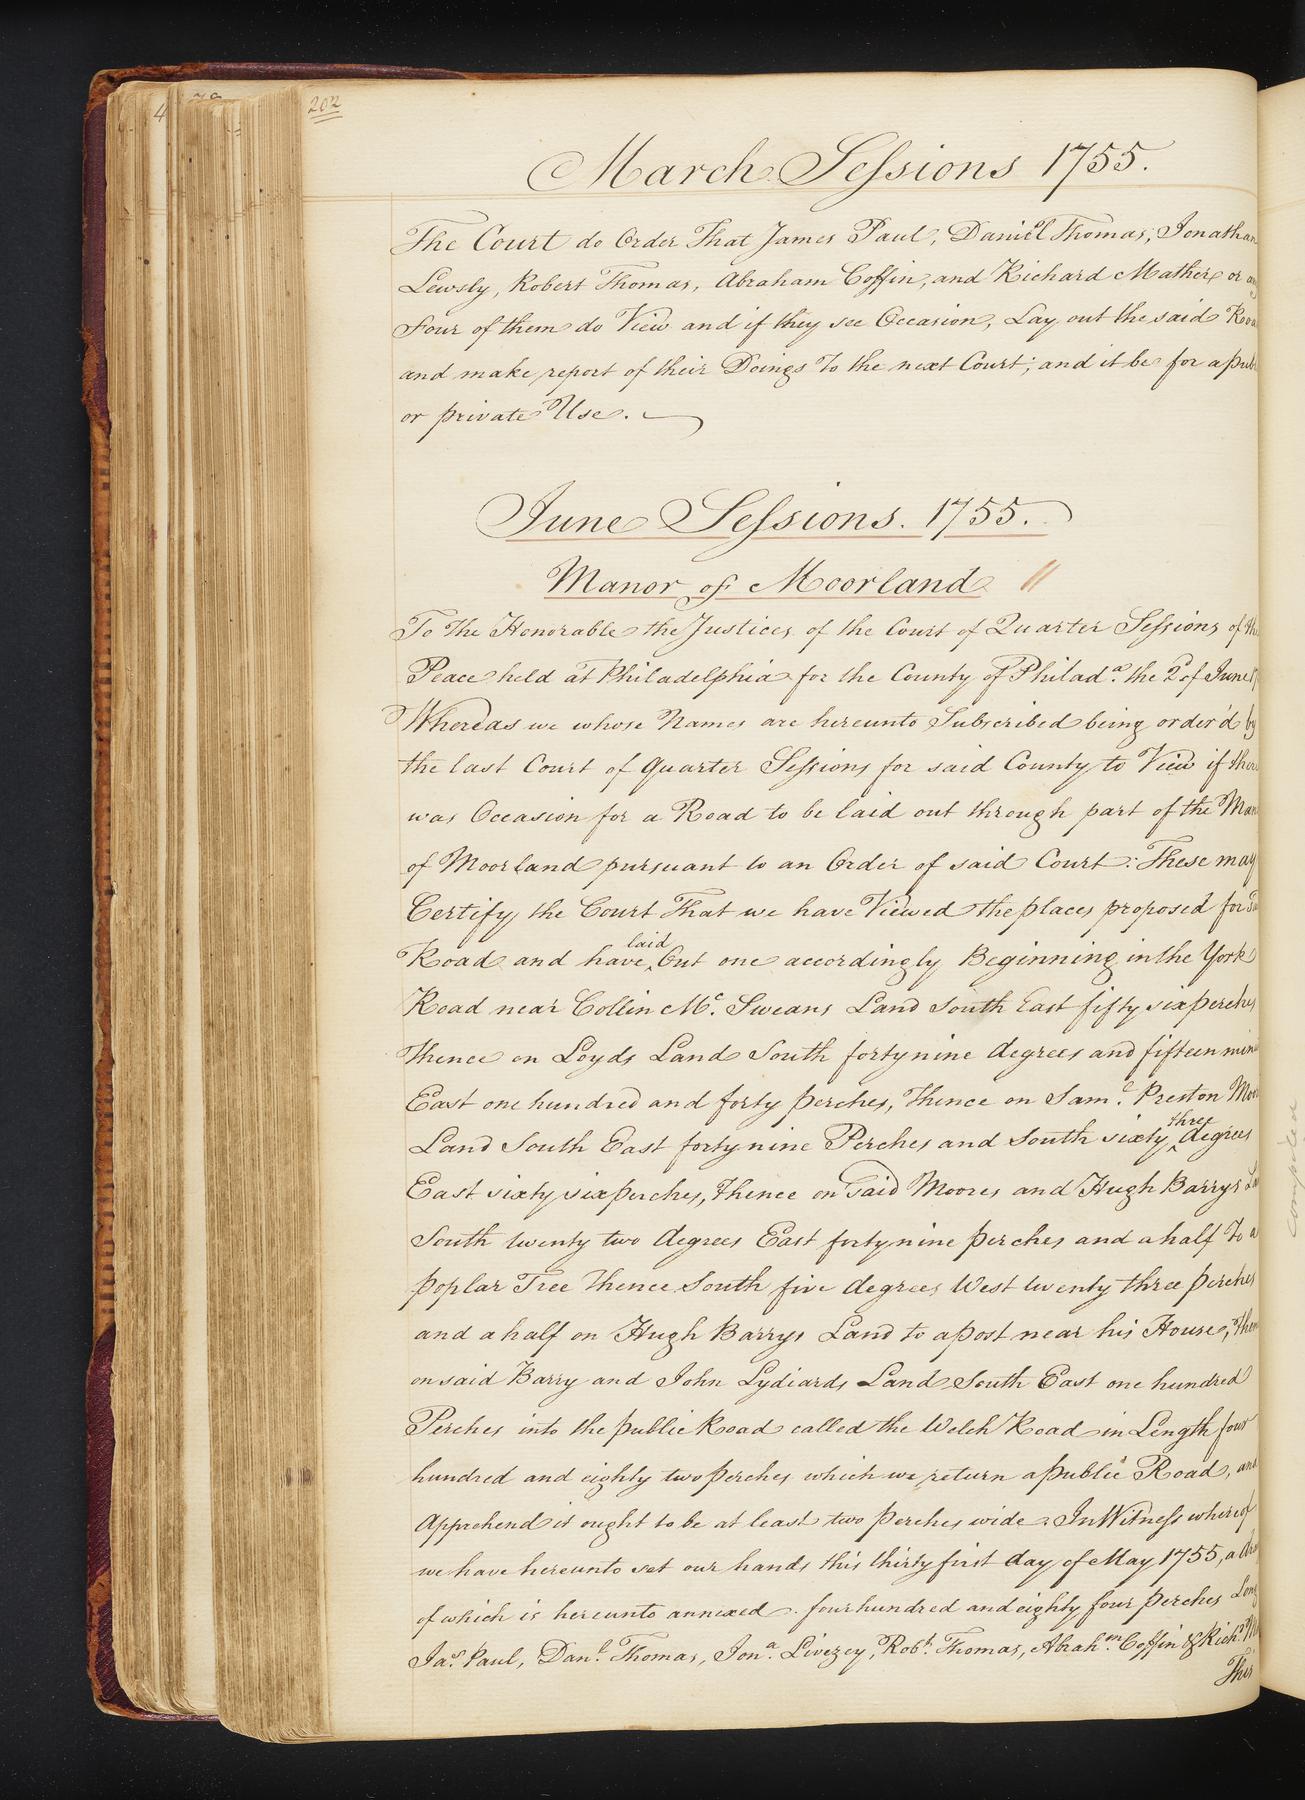 202
March Sessions 1755.
The Court do Order That James Paul, Daniel Thomas, Jonathan
Lewsly, Robert Thomas, Abraham Coffin, and Richard Mather or
Four of them do View and if they see Occasion, Lay out the said Roa
and make report of their Doings To the next Court; and it be for a pub
or private Use.
June Sessions. 1755.
Manor of Moorland
To The Honorable the Justices of the Court of Quarter Sessions of the
Peace held at Philadelphia for the County of Philad.a the 2d of June
Whereas we whose Names are hereunto Subscribed being order'd by
the last Court of Quarter Sessions for said County to View if there
was Occasion for a Road to be laid out through part of the Man
of Moorland pursuant to an Order of said Court: These may
Certify the Court That we have Viewed the places proposed for
Road and have laid Out one accordingly Beginning in the York
Road near Collin Mc. Sweans Land South East fifty six perches
Thence on Loyds Land South forty nine degrees and fifteen min
East one hundred and forty perches, Thence on Sam.l Preston Moo
Land South East forty nine Perches and South sixty three degrees
East sixty six perches, Thence on Said Moores and Hugh Barrys La
South twenty two degrees East forty nine perches and a half To a
poplar Tree Thence South five degrees West twenty three perches
and a half on Hugh Barrys Land to a post near his House, Then
on said Barry and John Lydiards Land South East one hundred
Perches into the public Road called the Welch Road in Length four
hundred and eighty two perches which we return a public Road, and
Apprehend it ought to be at least two perches wide. In Witness whereof
we have hereunto set our hands this thirty first day of May 1755, a dra
of which is hereunto annexed. four hundred and eighty four perches Long
Jas. Paul, Dan.l Thomas, Jon.a Livezey, Rob.t Thomas, Abrah.m Coffin & Rich.d M
This
compared